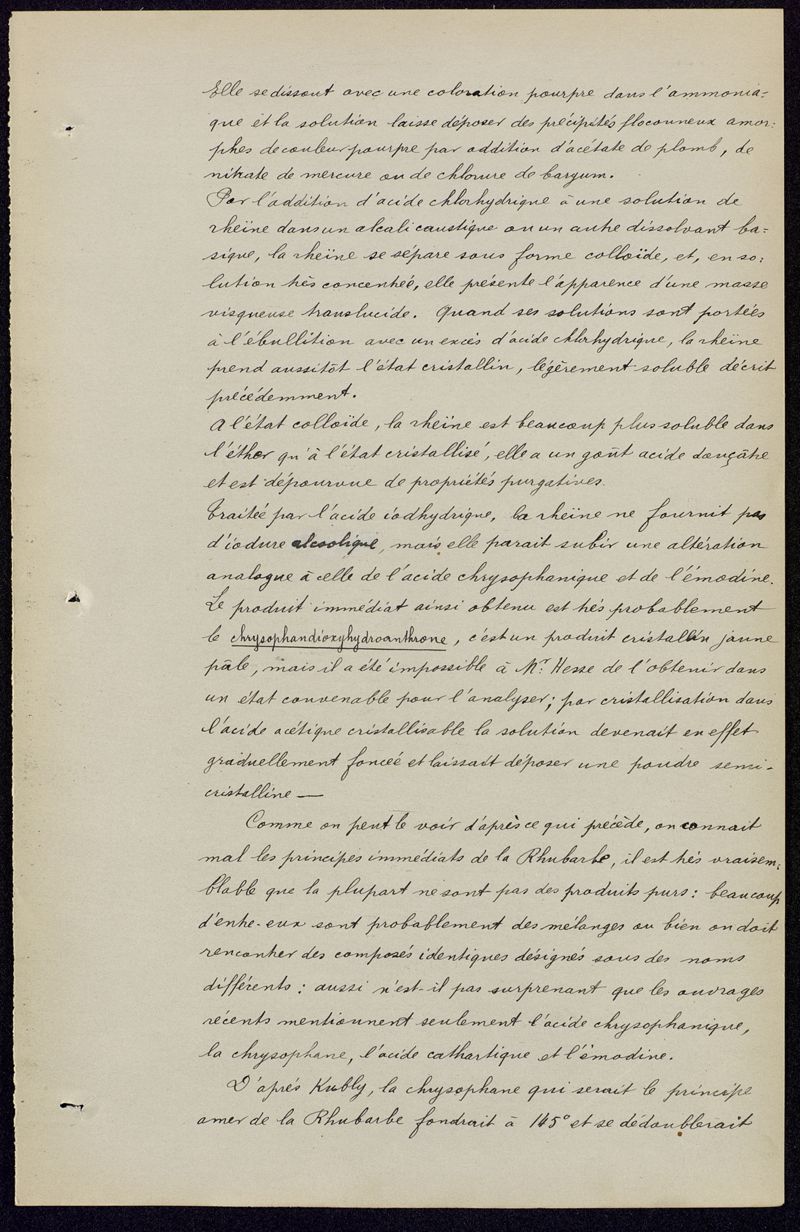 Elle se dissout avec une coloration pourpre dans l'ammonia=
que et la solution laisse déposer des précipités floconneux amor=
phes de couleur pourpre par addition d'acétate de plomb, de
nitrate de mercure ou de chlorure de baryum.
Par l'addition d'acide chlorhydrique à une solution de
rheïne dans un alcali caustique ou un autre dissolvant ba=
sique, la rheïne se sépare sous forme colloïde, et, en so=
lution très concentreé, elle présente l'apparence d'une masse
visqueuse translucide. Quand ses solutions sont porteés
à l'ébullition avec un excès d'acide chlorhydrique, la rheïne
prend aussitôt l'état cristallin, légèrement soluble décrit
précédemment.
A l'état colloïde, la rheïne est beaucoup plus soluble dans
l'éther qu'à l'état cristallisé, elle a un goût acide douçâtre
et est dépourvue de propriétés purgatives.
Traiteé par l'acide iodhydrique, la rheïne ne fournit pas
d'iodure alcoolique, mais elle parait subir une altération
analogue à celle de l'acide chrysophanique et de l'émodine.
Le produit immédiat ainsi obtenu est très probablement
le chrysophandioxyhydroanthrone, c'est un produit cristallin jaune
pâle, mais il a été impossible à Mr. Hesse de l'obtenir dans
un état convenable pour l'analyser; par cristallisation dans
l'acide acétique cristallisable la solution devenait en effet
graduellement fonceé et laissait déposer une poudre semi-
cristalline —
Comme on peut le voir d'après ce qui précède, on connait
mal les principes immédiats de la Rhubarbe, il est très vraisem=
blable que la plupart ne sont pas des produits purs: beaucoup
d'entre-eux sont probablement des mélanges ou bien on doit
rencontrer des composés identiques désignés sous des noms
différents: aussi n'est-il pas surprenant que les ouvrages
récents mentionnent seulement l'acide chrysophanique,
la chrysophane, l'acide cathartique et l'émodine.
D'après Kubly, la chrysophane qui serait le principe
amer de la Rhubarbe fondrait à 145° et se dédoublerait